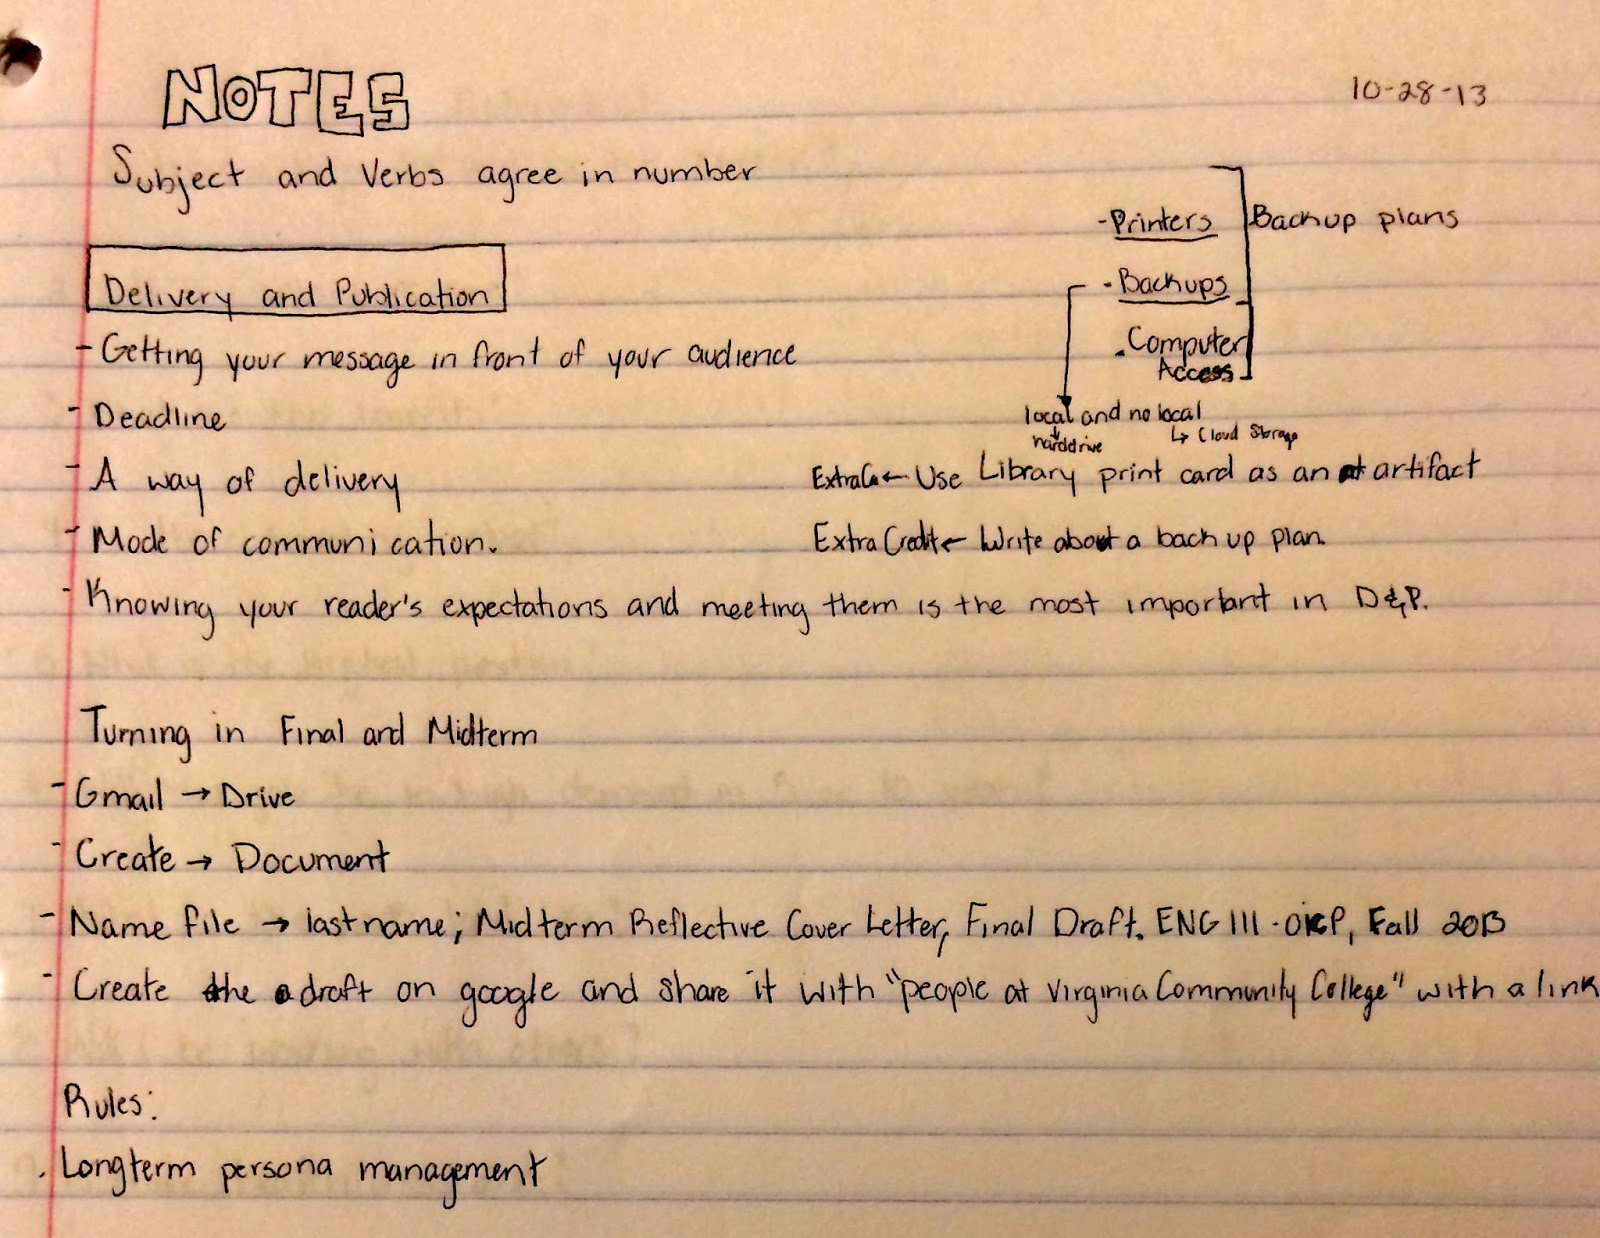 NOTES
10-28-13
Subject and Verbs agree in number
-Printers
Backup plans
Delivery and Publication
-Backups
-Getting your message in front of your audience
.Computer
Access
-Deadline
local and no local
harddrive
↳ Cloud Storage
-A way of delivery
ExtraCr← Use Library print card as an artifact
-Mode of communication.
Extra Credit← Write about a back up plan.
-Knowing your reader's expectations and meeting them is the most important in D&P.
Turning in Final and Midterm
-Gmail → Drive
-Create → Document
-Name file → lastname; Midterm Reflective Cover Letter, Final Draft. ENG 111 - Fall 2013
-Create the draft on google and share it with "people at Virginia Community College" with a link
Rules:
. Longterm persona management